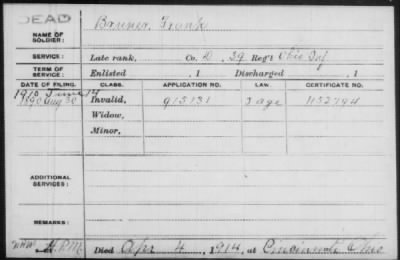 DEAD
NAME OF SOLDIER: Bruner, Frank
SERVICE: Late rank, Co. D, 39 Reg't Ohio Inf
TERM OF SERVICE: Enlisted , 1 Discharged , 1
DATE OF FILING. CLASS. APPLICATION NO. LAW. CERTIFICATE NO.
1910 June 14
1890 Aug 30 Invalid, 913131 J age 1132794
Widow,
Minor,
ADDITIONAL SERVICES:
REMARKS:
Died Apr 4, 1914, at Cincinnati Ohio